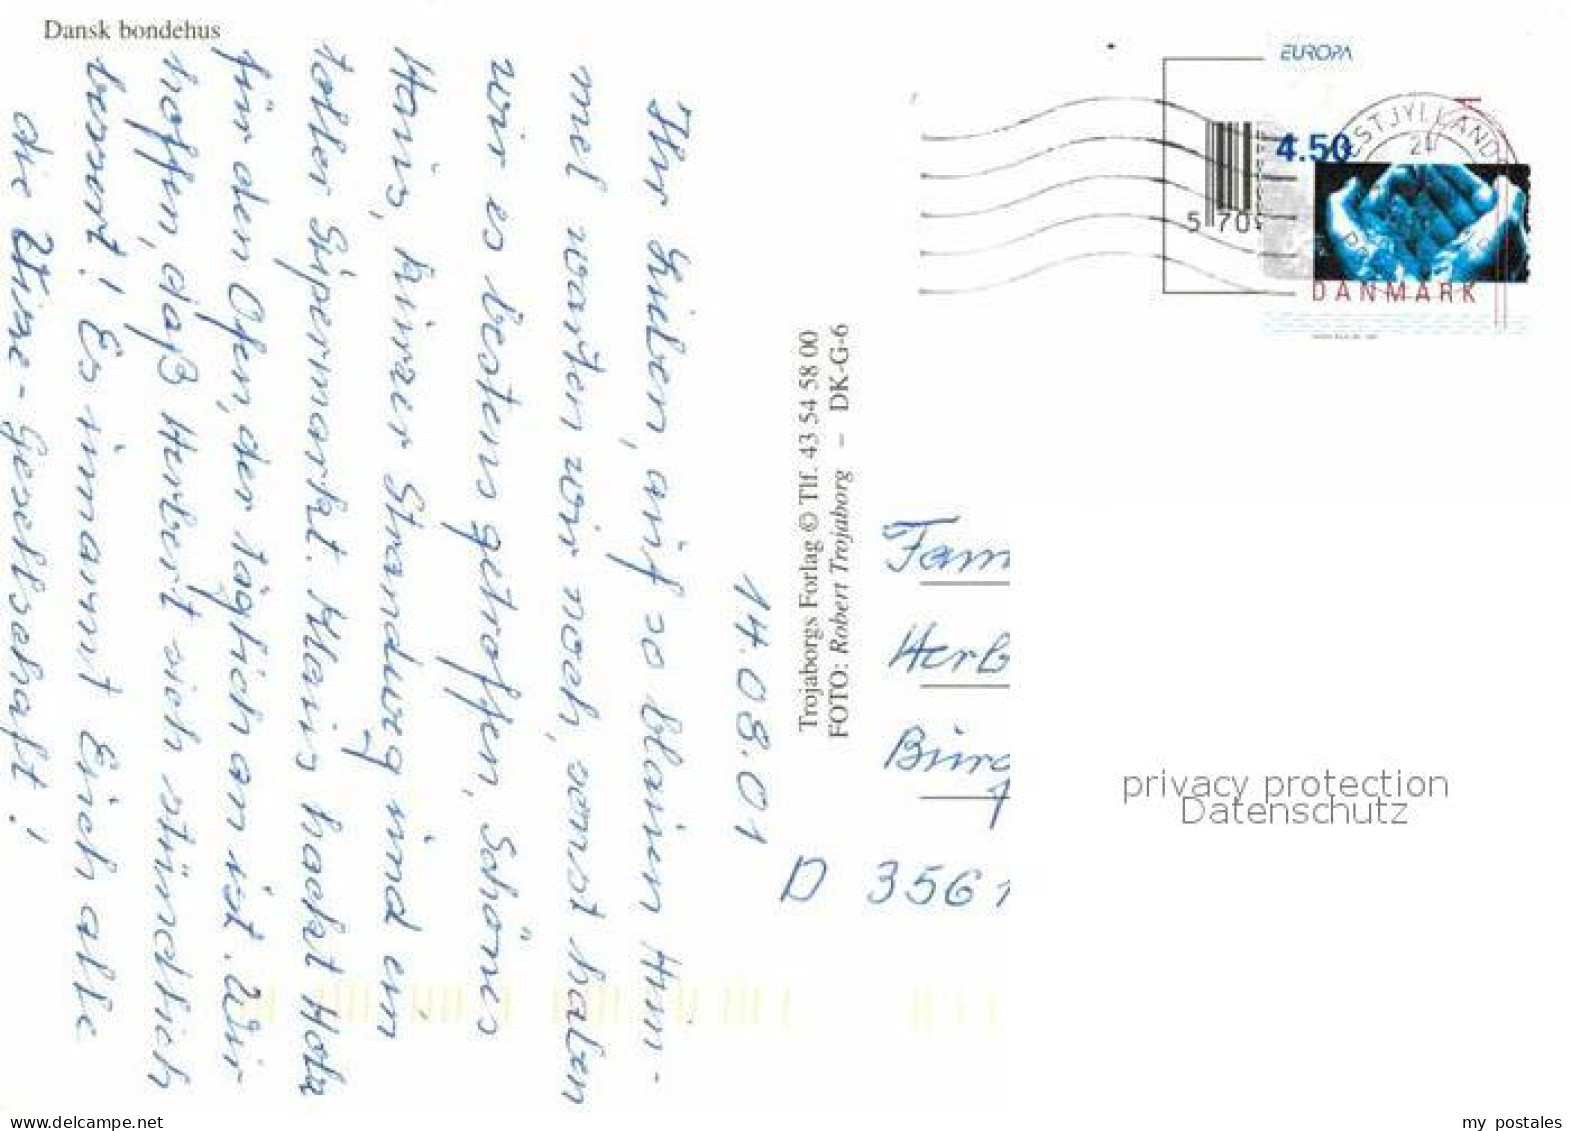 Dansk bondehus
14.08.01
Ihr Lieben, auf so blauen Him-
mel warten wir noch, sonst haben
wir es bestens getroffen, Schönes
Haus, kurzer Strandweg und ein
toller Supermarkt. Klaus hackt Holz
für den Ofen, der täglich an ist. Wir
hoffen, daß Herbert sich stündlich
bessert! Es umarmt Euch alle
die Gesellschaft!
Trojaborgs Forlag © Tlf. 43 54 58 00
FOTO: Robert Trojaborg – DK-G-6
EUROPA
4.50
DANMARK
5 70
Fam
Herb
Burg
D 3561
privacy protection
Datenschutz
www.delcampe.net
my_postales